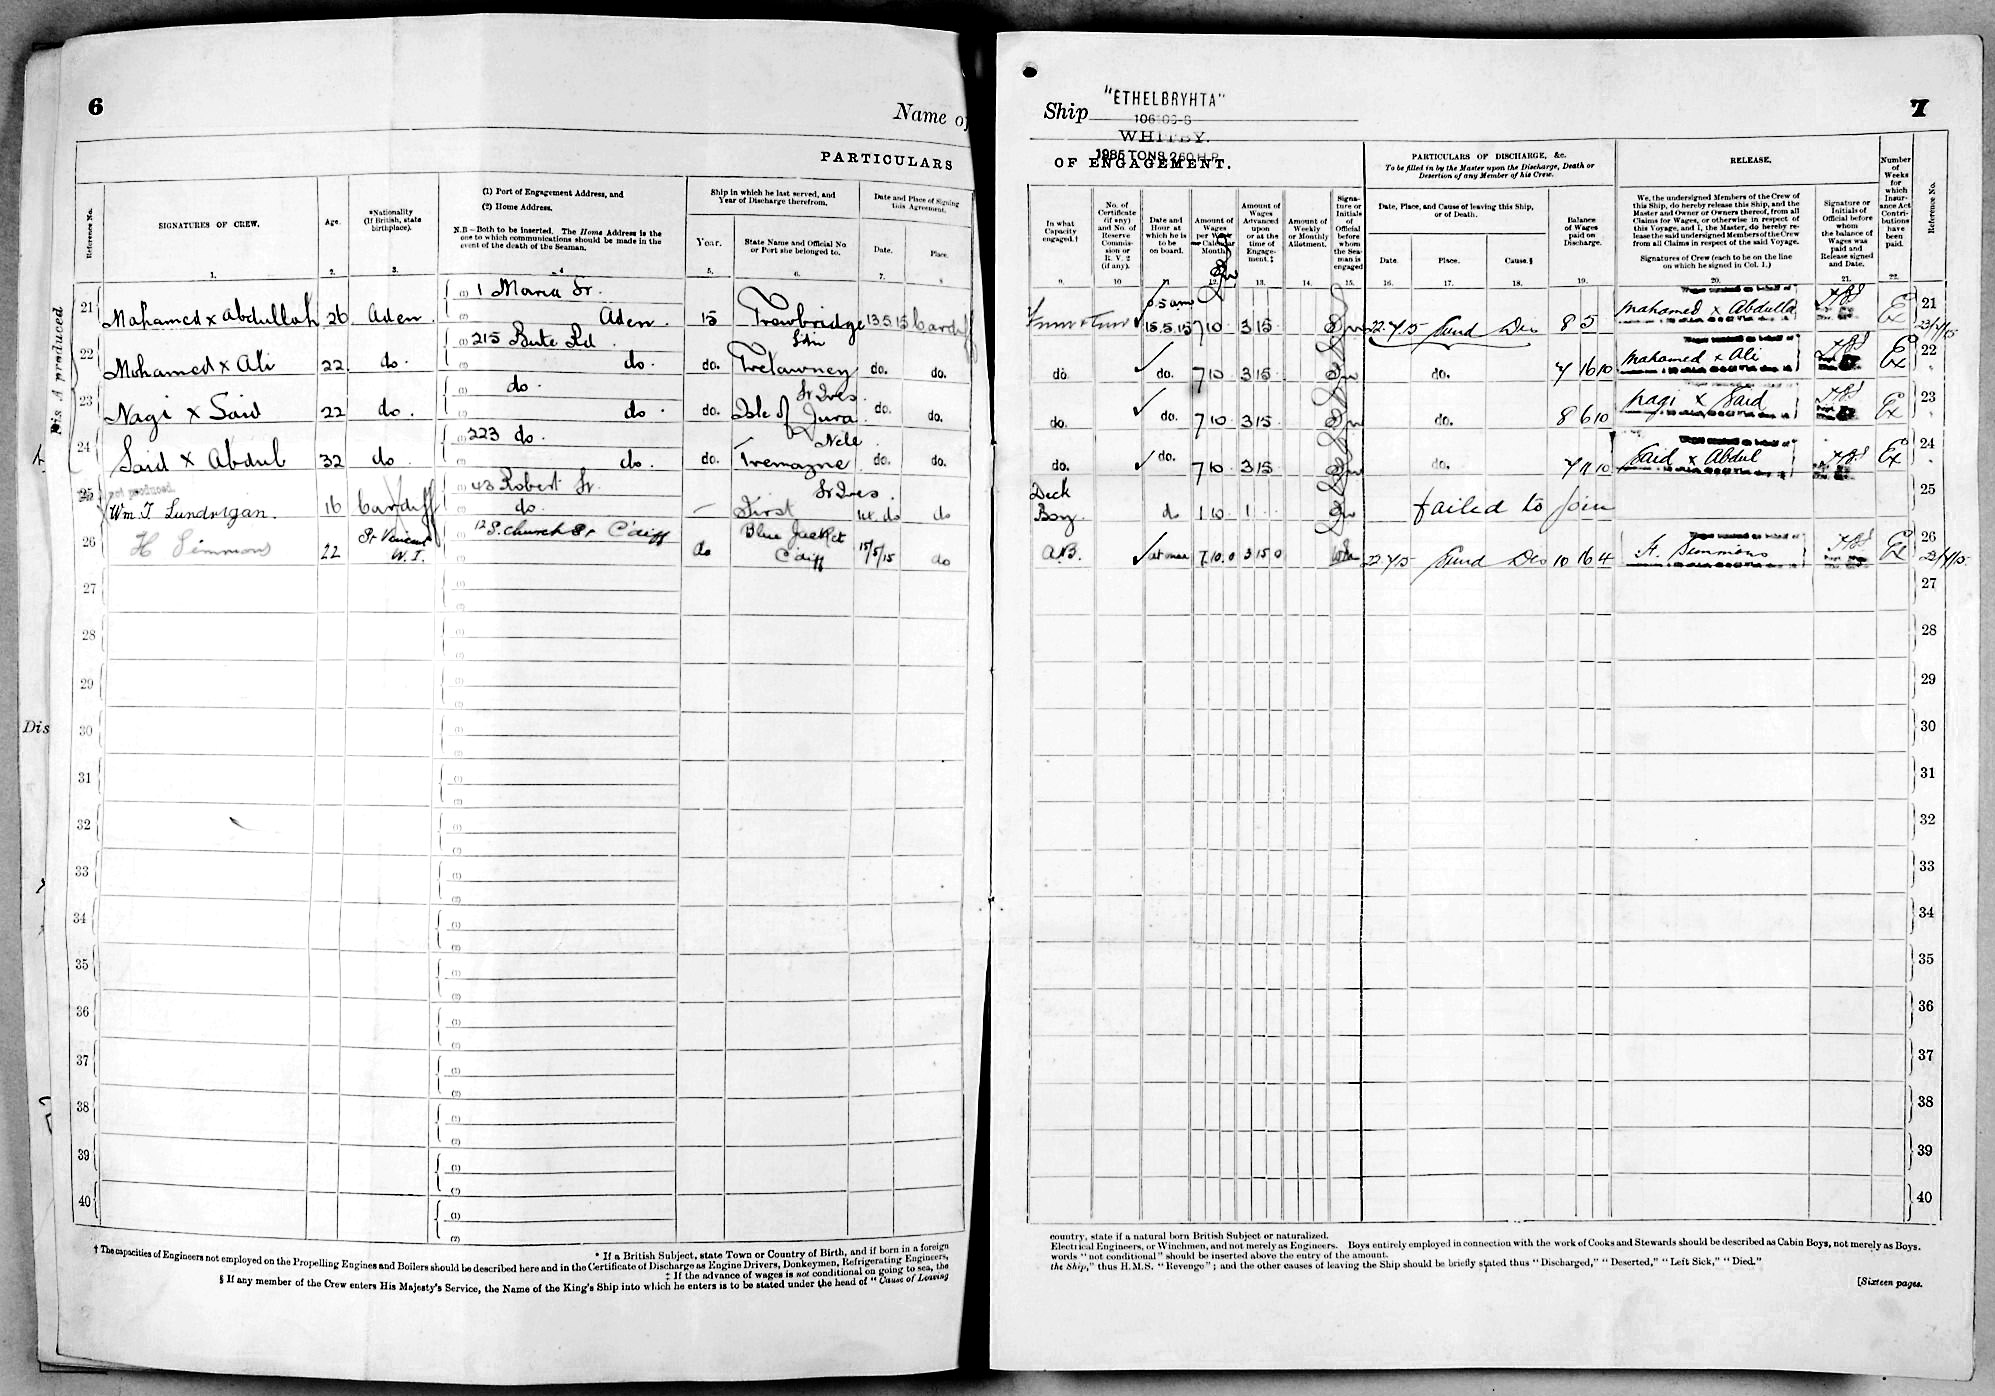 6
Name of
PARTICULARS
Reference No.
SIGNATURES OF CREW.
Age.
*Nationality
(If British, state
birthplace).
(1) Port of Engagement Address, and
(2) Home Address.
N.B.—Both to be inserted. The Home Address is the
one to which communications should be made in the
event of the death of the Seaman.
Ship in which he last served, and
Year of Discharge therefrom.
Year.
State Name and Official No.
or Port she belonged to.
Date and Place of Signing
this Agreement.
Date.
Place.
1. 2. 3. 4 5. 6. 7. 8
Dis A produced
21 Mohamed x Abdullah 26 Aden. (1) 1 Maria St. (2) Aden. 15 Trowbridge Ldn 13.5.15 Cardiff
22 Mohamed x Ali 22 do. (1) 215 Bute Rd. (2) do. do. Trelawney St Ives. do. do.
23 Nagi x Said 22 do. (1) do. (2) do. do. Isle of Jura do. do.
24 Said x Abdul 32 do. (1) 223 do. (2) do. do. Tremayne St Ives. do. do.
not produced.
25 Wm. T Lundrigan. 16 Cardiff (1) 43 Robert St. (2) do. — First 14. do do
26 H Simmons 22 St Vincent W. I. (1) 12 S. Church St C'diff do Blue Jacket C'diff 15/5/15 do
27
28
29
30
31
32
33
34
35
36
37
38
39
40
Dis
* If a British Subject, state Town or Country of Birth, and if born in a foreign
† The capacities of Engineers not employed on the Propelling Engines and Boilers should be described here and in the Certificate of Discharge as Engine Drivers, Donkeymen, Refrigerating Engineers,
‡ If the advance of wages is not conditional on going to sea, the
§ If any member of the Crew enters His Majesty's Service, the Name of the King's Ship into which he enters is to be stated under the head of "Cause of Leaving
Ship "ETHELBRYHTA"
WHITBY.
1986 TONS 260 H.P.
7
OF ENGAGEMENT.
PARTICULARS OF DISCHARGE, &c.
To be filled in by the Master upon the Discharge, Death or
Desertion of any Member of his Crew.
RELEASE.
In what
Capacity
engaged.†
No. of
Certificate
(if any)
and No. of
Reserve
Commis-
sion or
R. V. 2
(if any).
Date and
Hour at
which he is
to be
on board.
Amount of
Wages
per Week
or Calendar
Month.
Amount of
Wages
Advanced
upon
or at the
time of
Engage-
ment.‡
Amount of
Weekly
or Monthly
Allotment.
Signa-
ture or
Initials
of
Official
before
whom
the Sea-
man is
engaged
Date, Place, and Cause of leaving this Ship,
or of Death.
Date.
Place.
Cause.§
Balance
of Wages
paid on
Discharge.
We, the undersigned Members of the Crew of
this Ship, do hereby release this Ship, and the
Master and Owner or Owners thereof, from all
Claims for Wages, or otherwise in respect of
this Voyage, and I, the Master, do hereby re-
lease the said undersigned Members of the Crew
from all Claims in respect of the said Voyage.
Signatures of Crew (each to be on the line
on which he signed in Col. 1.)
Signature or
Initials of
Official before
whom
the balance of
Wages was
paid and
Release signed
and Date.
Number
of
Weeks
for
which
Insur-
ance Act
Contri-
butions
have
been
paid.
Reference No.
9. 10 11. 12. 13. 14. 15. 16. 17. 18. 19. 20. 21. 22.
5 am 15.5.15 7 10 3 15 22.7.15 Sund Dis 8 5 Mohamed x Abdulla Ex 21
do. do. 7 10 3 15 do. 7 16 10 Mohamed x Ali Ex 22
do. do. 7 10 3 15 do. 8 6 10 Nagi x Said Ex 23
do. do. 7 10 3 15 do. 7 11 10 Said x Abdul Ex 24
Deck Boy. do 1 10 1 Failed to Join 25
A.B. at once 7.10.0 3 15 0 22.7.15 Sund Dis 10 16 4 H. Simmons Ex 26
27
28
29
30
31
32
33
34
35
36
37
38
39
40
country, state if a natural born British Subject or naturalized.
Electrical Engineers, or Winchmen, and not merely as Engineers. Boys entirely employed in connection with the work of Cooks and Stewards should be described as Cabin Boys, not merely as Boys.
words "not conditional" should be inserted above the entry of the amount.
the Ship," thus H.M.S. "Revenge"; and the other causes of leaving the Ship should be briefly stated thus "Discharged," "Deserted," "Left Sick," "Died."
[Sixteen pages.